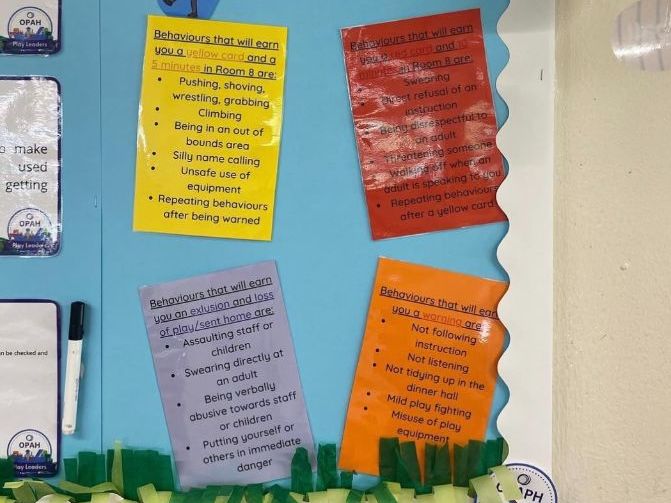 OPAH
Play Leaders
o make
used
getting
OPAH
Play Leaders
n be checked and
OPAH
Play Leaders
Behaviours that will earn
you a yellow card and a
5 minutes in Room 8 are:
• Pushing, shoving,
wrestling, grabbing
• Climbing
• Being in an out of
bounds area
• Silly name calling
• Unsafe use of
equipment
• Repeating behaviours
after being warned
Behaviours that will earn
you a red card and 10
minutes in Room 8 are:
• Swearing
• Direct refusal of an
instruction
• Being disrespectful to
an adult
• Threatening someone
• Walking off when an
adult is speaking to you
• Repeating behaviours
after a yellow card
Behaviours that will earn
you an exlusion and loss
of play/sent home are:
• Assaulting staff or
children
• Swearing directly at
an adult
• Being verbally
abusive towards staff
or children
• Putting yourself or
others in immediate
danger
Behaviours that will ear
you a warning are:
• Not following
instruction
• Not listening
• Not tidying up in the
dinner hall
• Mild play fighting
• Misuse of play
equipment
OPAH